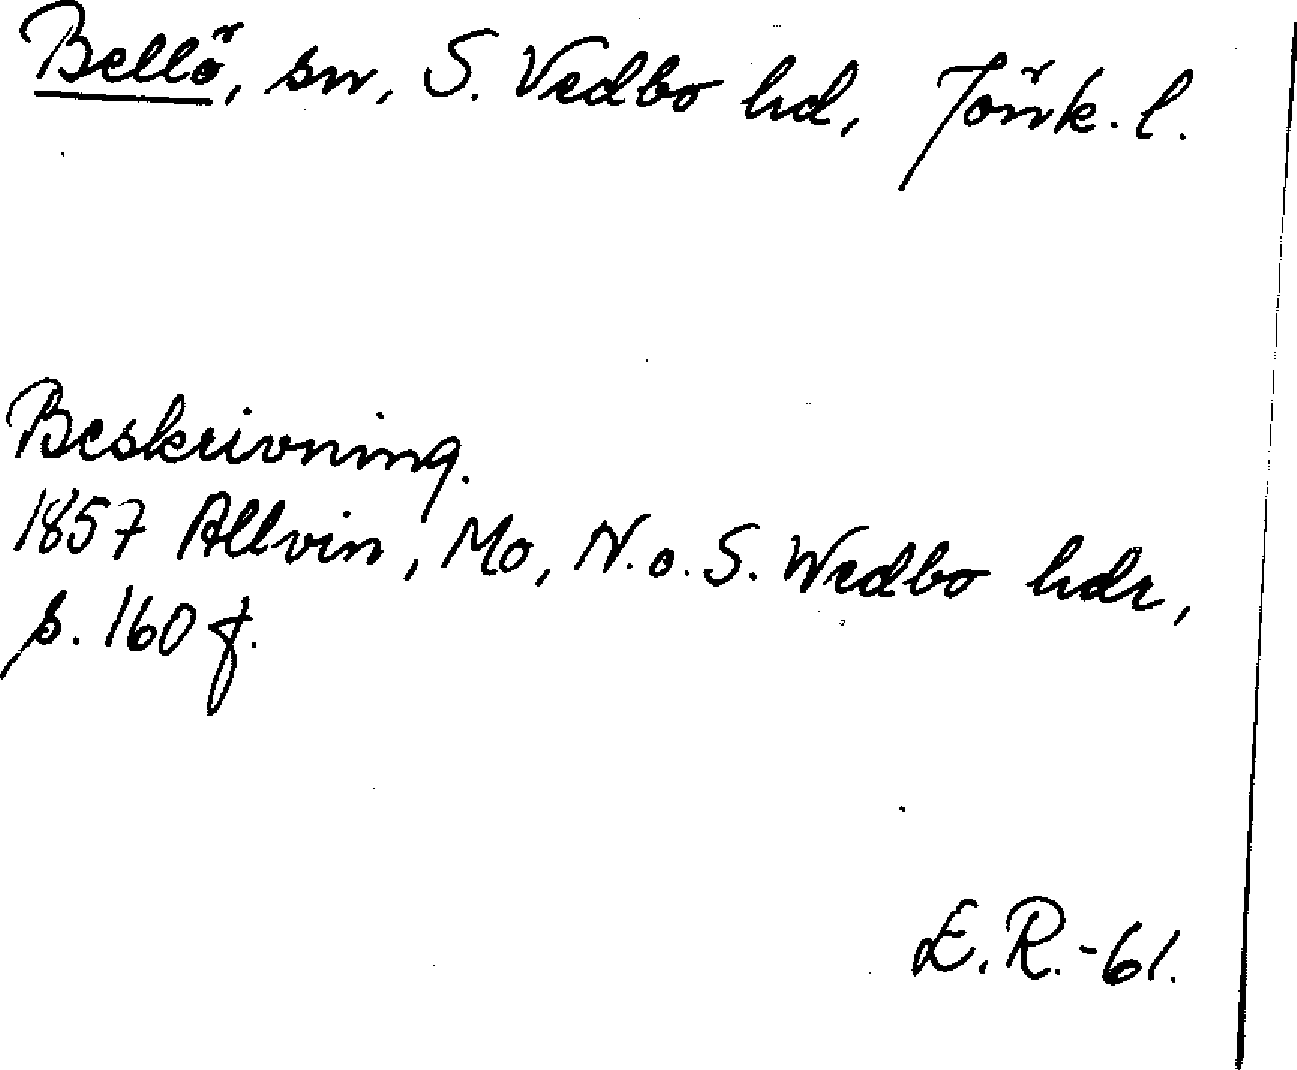 Bellö, sn, S. Vedbo hd, Jönk. l.
Beskrivning.
1857 Allvin, Mo, N. o. S. Wedbo hdr,
s. 160 f.
E. R. -61.